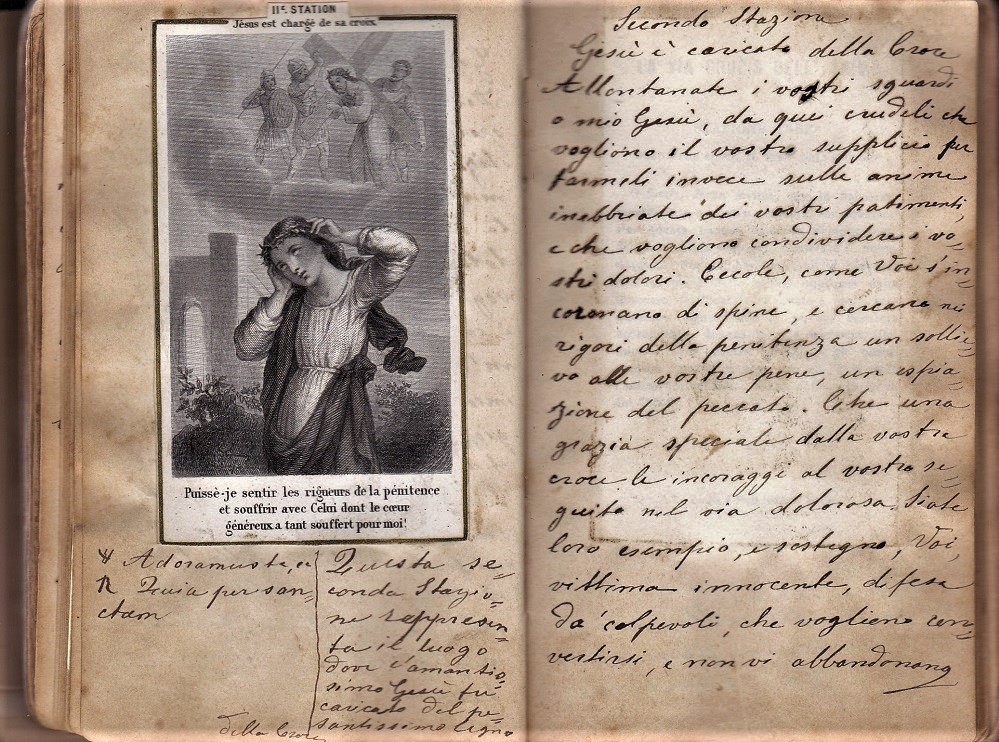 IIe. STATION
Jésus est chargé de sa croix.
Puissè-je sentir les rigueurs de la pénitence
et souffrir avec Celui dont le cœur
généreux a tant souffert pour moi!
Adoramuste, ec
Quia per san=
ctam
Questa se=
conda Stazio=
ne rappresen=
ta il luogo
dove l'amantis=
simo Gesù fu
caricato del pe=
santissimo legno
della Croce
Secondo Stazione
Gesù è caricato della Croce
Allontanate i vostri sguardi
o mio Gesù, da quei crudeli che
vogliono il vostro supplicio per
farmeli invece sulle anime
inebbriate dei vostri patimenti,
e che vogliono condividere i vo=
stri dolori. Eccole, come Voi s'in=
coronano di spine, e cercano nei
rigori della penitenza un sollie=
vo alle vostre pene, un espia=
zione del peccato. Che una
grazia speciale dalla vostra
croce le incoraggi al vostro se=
guito nel via dolorosa. Siate
loro esempio, e sostegno, Voi,
vittima innocente, difesa
da' colpevoli, che vogliono con=
vertirsi, e non vi abbandonano